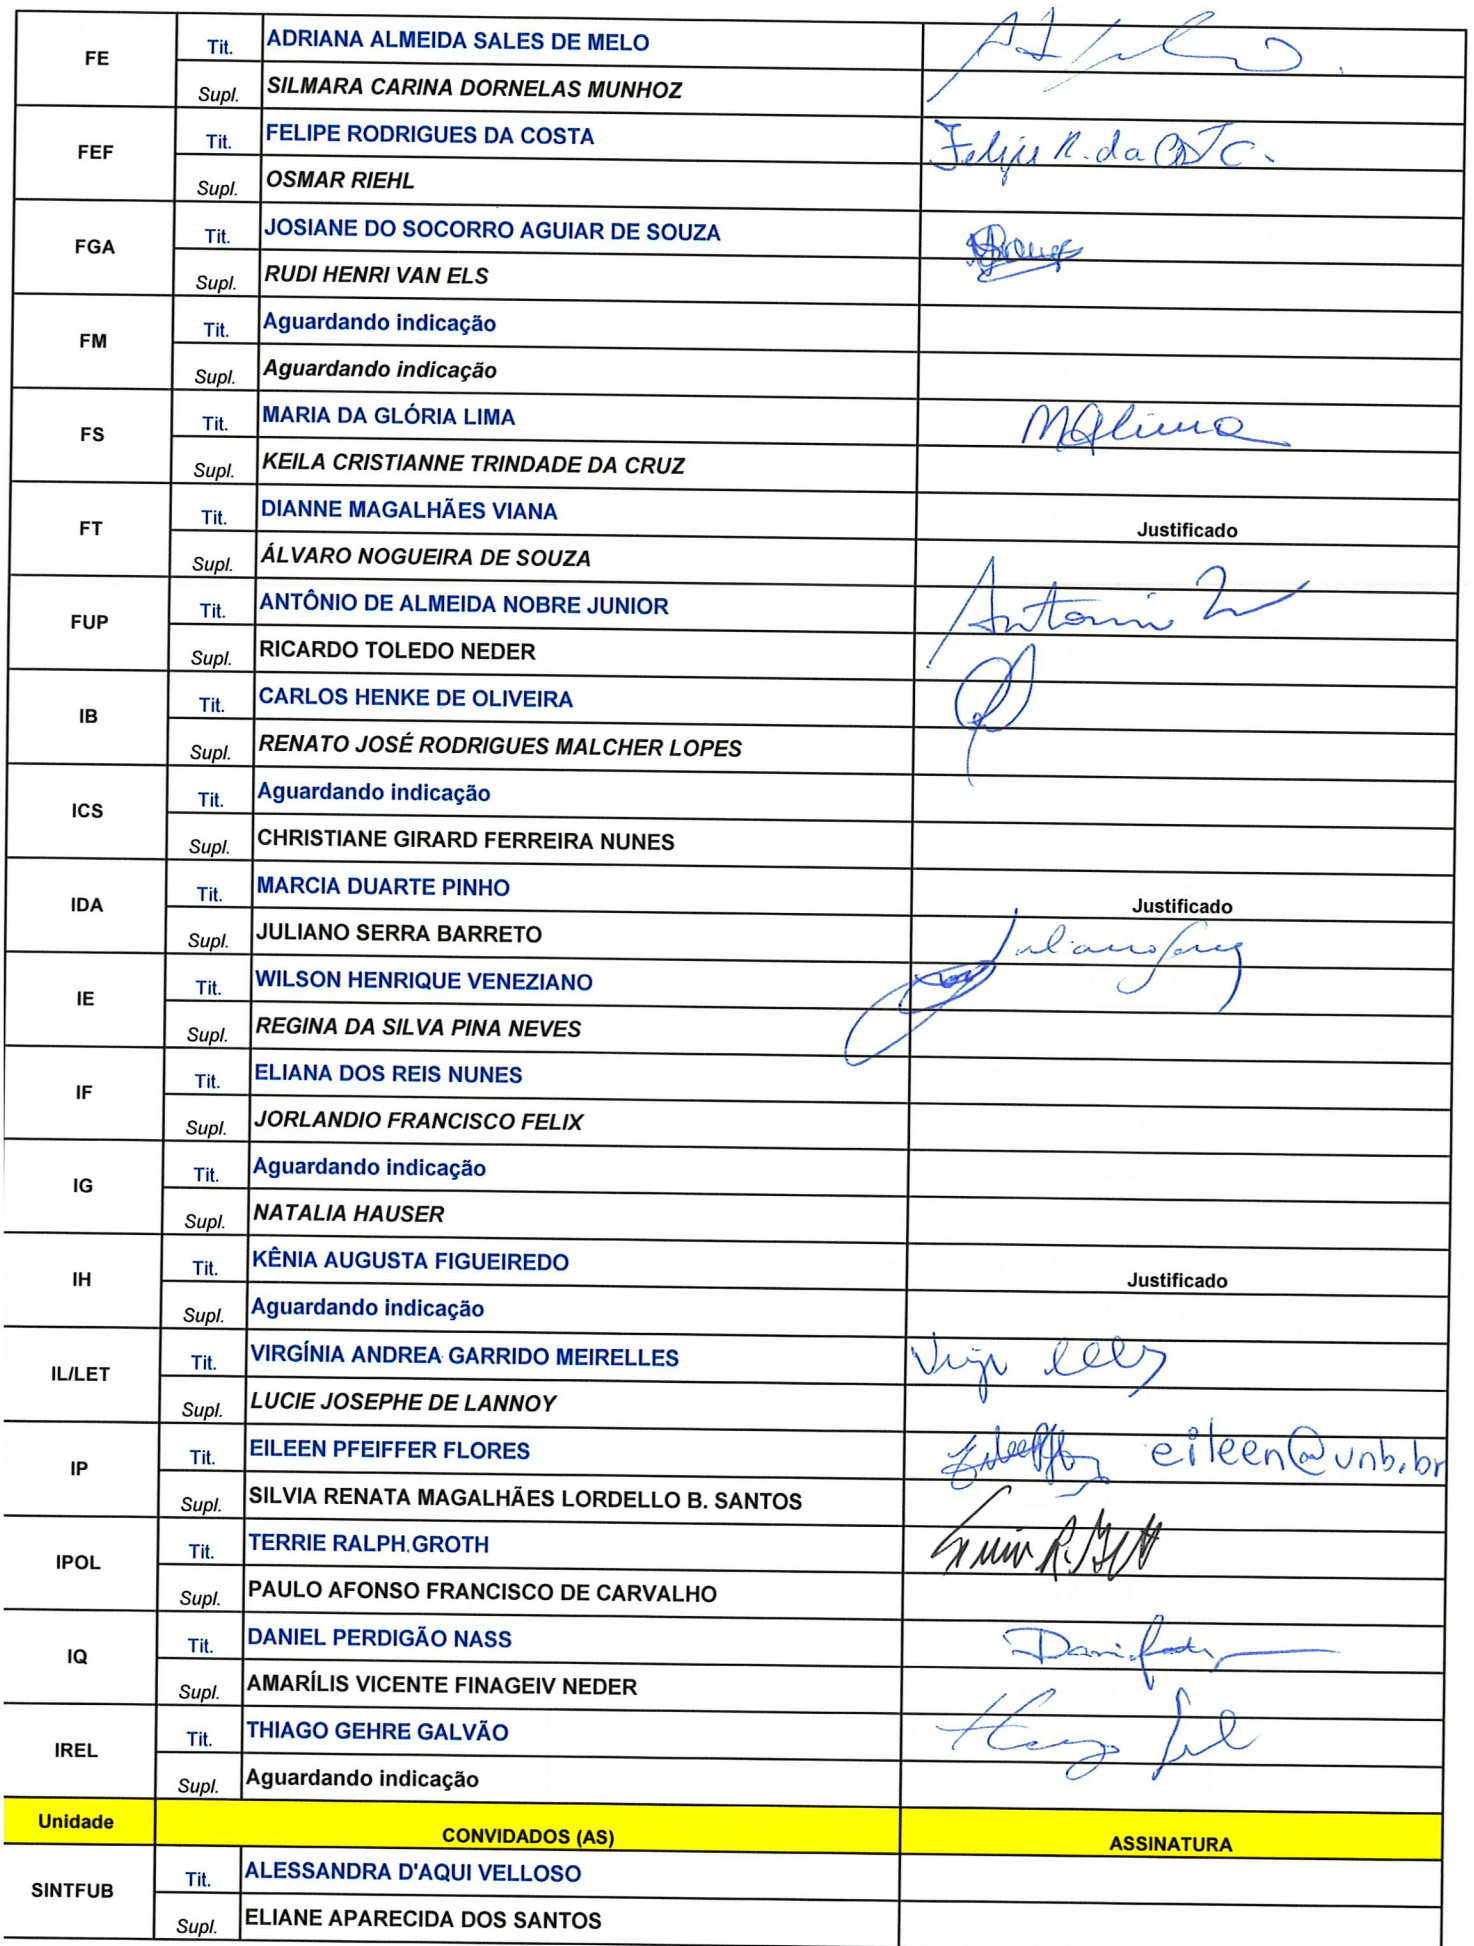 FE Tit. ADRIANA ALMEIDA SALES DE MELO
Supl. SILMARA CARINA DORNELAS MUNHOZ
FEF Tit. FELIPE RODRIGUES DA COSTA Felipe R. da Costa
Supl. OSMAR RIEHL
FGA Tit. JOSIANE DO SOCORRO AGUIAR DE SOUZA
Supl. RUDI HENRI VAN ELS
FM Tit. Aguardando indicação
Supl. Aguardando indicação
FS Tit. MARIA DA GLÓRIA LIMA MGlima
Supl. KEILA CRISTIANNE TRINDADE DA CRUZ
FT Tit. DIANNE MAGALHÃES VIANA Justificado
Supl. ÁLVARO NOGUEIRA DE SOUZA
FUP Tit. ANTÔNIO DE ALMEIDA NOBRE JUNIOR Antonio
Supl. RICARDO TOLEDO NEDER
IB Tit. CARLOS HENKE DE OLIVEIRA
Supl. RENATO JOSÉ RODRIGUES MALCHER LOPES
ICS Tit. Aguardando indicação
Supl. CHRISTIANE GIRARD FERREIRA NUNES
IDA Tit. MARCIA DUARTE PINHO Justificado
Supl. JULIANO SERRA BARRETO Juliano Serra
IE Tit. WILSON HENRIQUE VENEZIANO
Supl. REGINA DA SILVA PINA NEVES
IF Tit. ELIANA DOS REIS NUNES
Supl. JORLANDIO FRANCISCO FELIX
IG Tit. Aguardando indicação
Supl. NATALIA HAUSER
IH Tit. KÊNIA AUGUSTA FIGUEIREDO Justificado
Supl. Aguardando indicação
IL/LET Tit. VIRGÍNIA ANDREA GARRIDO MEIRELLES
Supl. LUCIE JOSEPHE DE LANNOY
IP Tit. EILEEN PFEIFFER FLORES eileen@unb.br
Supl. SILVIA RENATA MAGALHÃES LORDELLO B. SANTOS
IPOL Tit. TERRIE RALPH GROTH
Supl. PAULO AFONSO FRANCISCO DE CARVALHO
IQ Tit. DANIEL PERDIGÃO NASS
Supl. AMARÍLIS VICENTE FINAGEIV NEDER
IREL Tit. THIAGO GEHRE GALVÃO
Supl. Aguardando indicação
Unidade CONVIDADOS (AS) ASSINATURA
SINTFUB Tit. ALESSANDRA D'AQUI VELLOSO
Supl. ELIANE APARECIDA DOS SANTOS